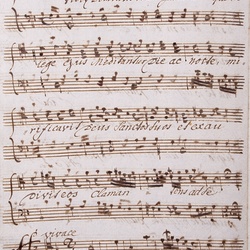 lege ejus meditantur die ac nocte mi
rificavit Deus Sanctos suos et exau
divit eos claman tes ad se
vivace